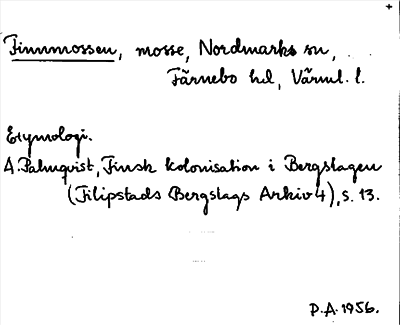 Finnmossen, mosse, Nordmarks sn,
Färnebo hd, Värml. l.
Etymologi.
A. Palmqvist, Finsk kolonisation i Bergslagen
(Filipstads Bergslags Arkiv 4), s. 13.
P.A. 1956.